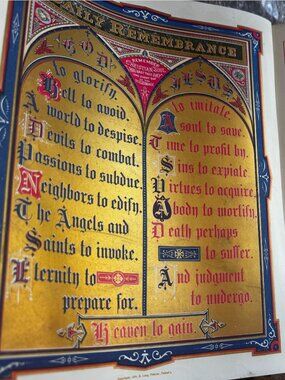 DAILY REMEMBRANCE
REMEMBER
CHRISTIAN SOUL
THAT THOU HAST THIS
DAY
GOD
to glorify.
Hell to avoid.
A world to despise.
Devils to combat.
Passions to subdue.
Neighbors to edify.
The Angels and
Saints to invoke.
Eternity to
prepare for.
JESUS
to imitate,
A soul to save.
Time to profit by.
Sins to expiate
Virtues to acquire.
A body to mortify.
Death perhaps
to suffer.
And judgment
to undergo.
Heaven to gain.